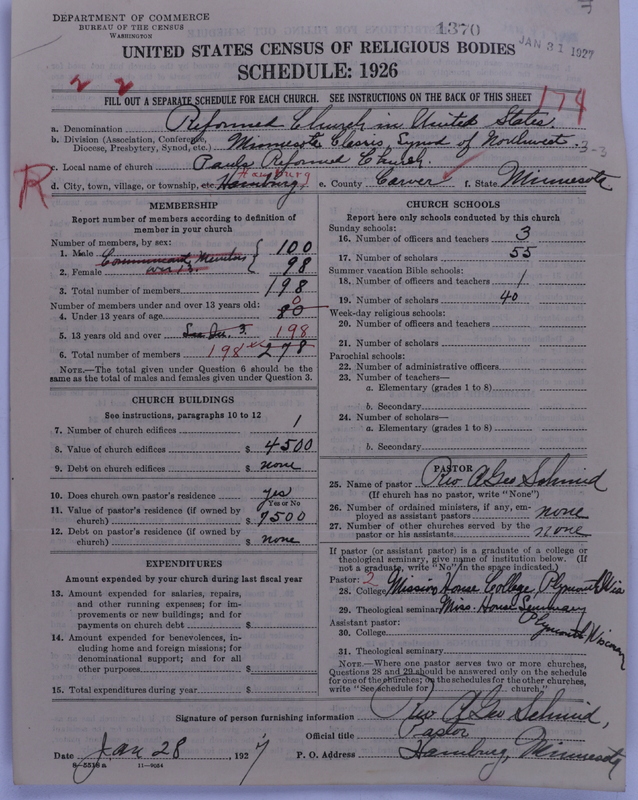 DEPARTMENT OF COMMERCE
BUREAU OF THE CENSUS
WASHINGTON
1370
JAN 31 1927
UNITED STATES CENSUS OF RELIGIOUS BODIES
SCHEDULE: 1926
2 2
FILL OUT A SEPARATE SCHEDULE FOR EACH CHURCH. SEE INSTRUCTIONS ON THE BACK OF THIS SHEET
174
a. Denomination Reformed Church in United States.
b. Division (Association, Conference, Diocese, Presbytery, Synod, etc.) Minnesota Classis, Synod of Northwest. 3-3
c. Local name of church Pauls Reformed Church.
R
d. City, town, village, or township, etc. Hamburg, Hamburg e. County Carver f. State Minnesota
MEMBERSHIP
Report number of members according to definition of
member in your church
Number of members, by sex:
1. Male Communicant Members 100
2. Female over 13. 98
3. Total number of members 198
Number of members under and over 13 years old:
4. Under 13 years of age 80 0
5. 13 years old and over See No. 3. 198
6. Total number of members 198 278
NOTE.—The total given under Question 6 should be the
same as the total of males and females given under Question 3.
CHURCH BUILDINGS
See instructions, paragraphs 10 to 12
7. Number of church edifices 1
8. Value of church edifices $ 4500
9. Debt on church edifices $ none
10. Does church own pastor's residence yes
Yes or No
11. Value of pastor's residence (if owned by
church) $ 9500
12. Debt on pastor's residence (if owned by
church) $ none
EXPENDITURES
Amount expended by your church during last fiscal year
13. Amount expended for salaries, repairs,
and other running expenses; for im-
provements or new buildings; and for
payments on church debt $
14. Amount expended for benevolences, in-
cluding home and foreign missions; for
denominational support; and for all
other purposes $
15. Total expenditures during year $
CHURCH SCHOOLS
Report here only schools conducted by this church
Sunday schools:
16. Number of officers and teachers 3
17. Number of scholars 55
Summer vacation Bible schools:
18. Number of officers and teachers 1
19. Number of scholars 40
Week-day religious schools:
20. Number of officers and teachers
21. Number of scholars
Parochial schools:
22. Number of administrative officers
23. Number of teachers—
a. Elementary (grades 1 to 8)
b. Secondary
24. Number of scholars—
a. Elementary (grades 1 to 8)
b. Secondary
PASTOR
25. Name of pastor Rev A Geo Schmid
(If church has no pastor, write "None")
26. Number of ordained ministers, if any, em-
ployed as assistant pastors none
27. Number of other churches served by the
pastor or his assistants none
If pastor (or assistant pastor) is a graduate of a college or
theological seminary, give name of institution below. (If
not a graduate, write "No" in the space indicated.)
Pastor: 2
28. College Mission House College, Plymouth Wis
29. Theological seminary Miss. House Seminary
Plymouth, Wisconsin
Assistant pastor:
30. College
31. Theological seminary
NOTE.—Where one pastor serves two or more churches,
Questions 28 and 29 should be answered only on the schedule
for one of the churches; on the schedules for the other churches,
write "See schedule for church."
Signature of person furnishing information Rev A Geo Schmid,
Official title Pastor
Date Jan 28, 1927 P. O. Address Hamburg, Minnesota
8-5518 a 11-9054